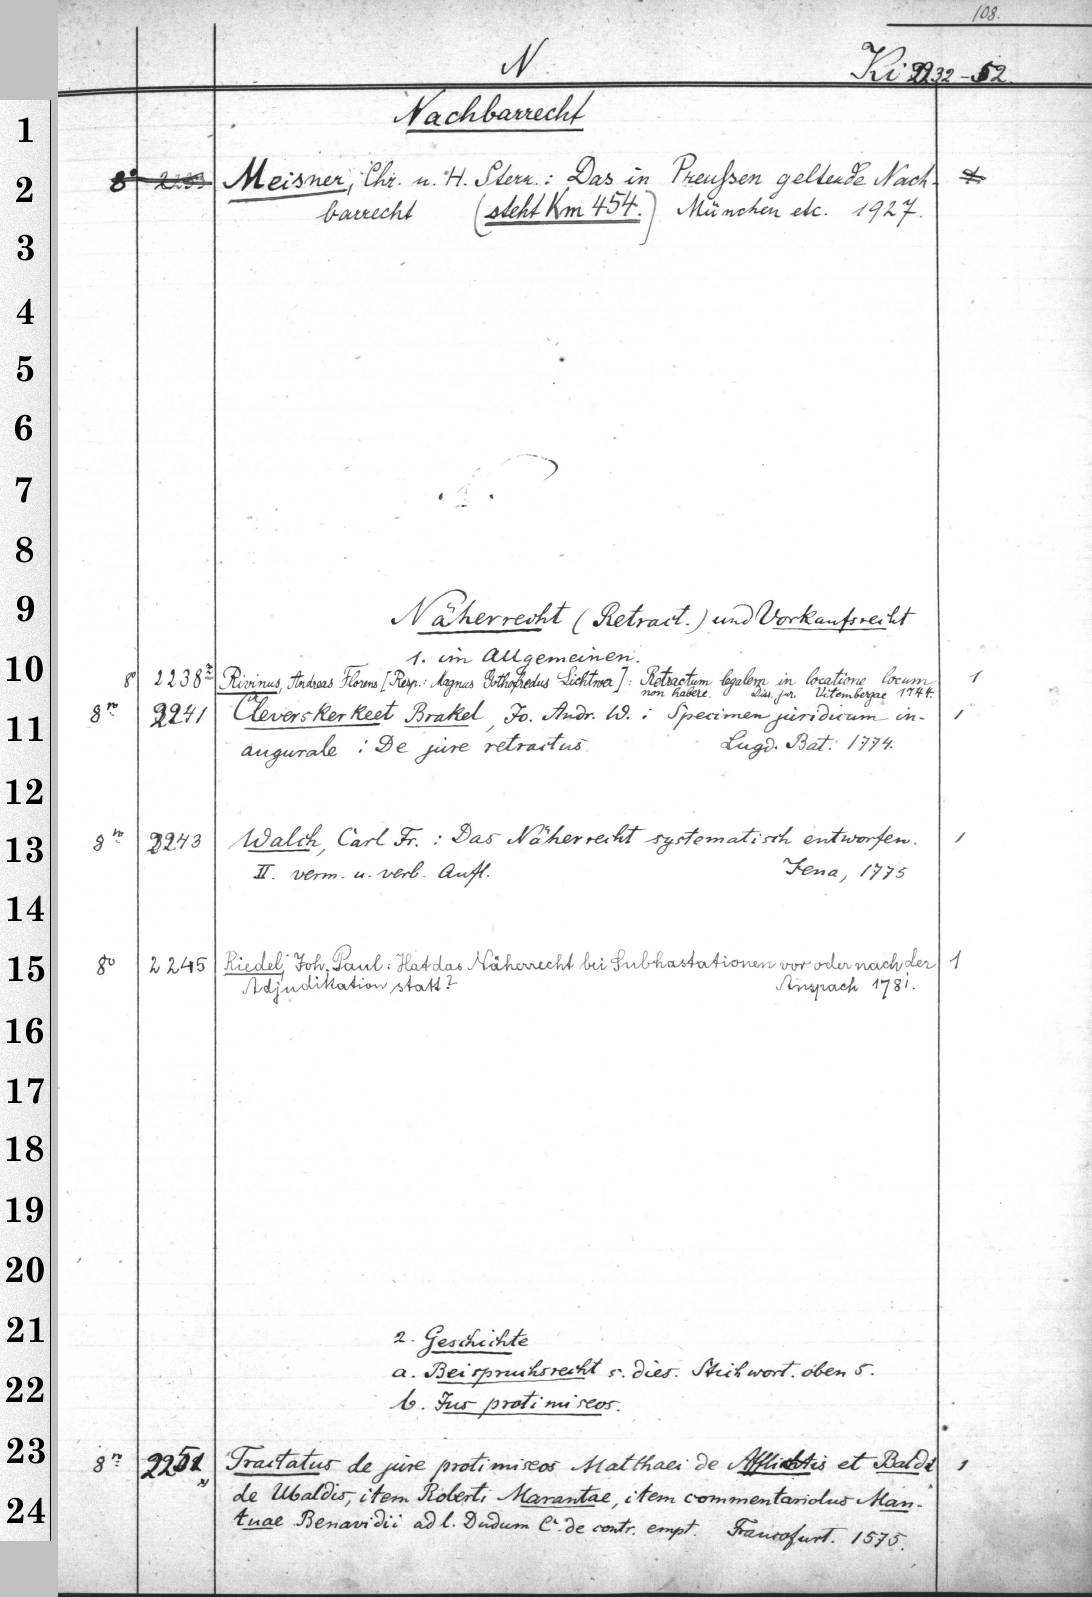 108.
N Ki 2232-52.
1 Nachbarrecht
2 8° Meisner, Chr. u. H. Stern.: Das in Preußen geltende Nach- 1
barrecht (steht Km 454.) München etc. 1927.
3
4
5
6
7
8
9 Näherrecht (Retract.) und Vorkaufsrecht
1. im allgemeinen.
10 8° 2238 Rivinus, Andreas Florens [Resp.: Magnus Gothofredus Lichtwer]: Retractum legalem in locatione locum 1
non habere. Diss. jur. Vitembergae 1744.
11 8° 2241 Cleverskerkeet Brakel, Jo. Andr. W.: Specimen juridicum in- 1
augurale: De jure retractus. Lugd. Bat. 1774.
12
13 8° 2243 Walch, Carl Fr.: Das Näherrecht systematisch entworfen. 1
II. verm. u. verb. Aufl. Jena, 1775
14
15 8° 2245 Riedel, Joh. Paul: Hat das Näherrecht bei Subhastationen vor oder nach der 1
Adjudikation statt? Anspach 1781.
16
17
18
19
20
21 2. Geschichte
22 a. Beispruchsrecht s. dies. Stichwort. oben 5.
b. Jus protimiseos.
23 8° 2251 Tractatus de jure protimiseos Matthaei de Afflictis et Baldi 1
24 de Ubaldis, item Roberti Marantae, item commentariolus Man-
tuae Benavidii ad l. Dudum C. de contr. empt. Francofurt. 1575.